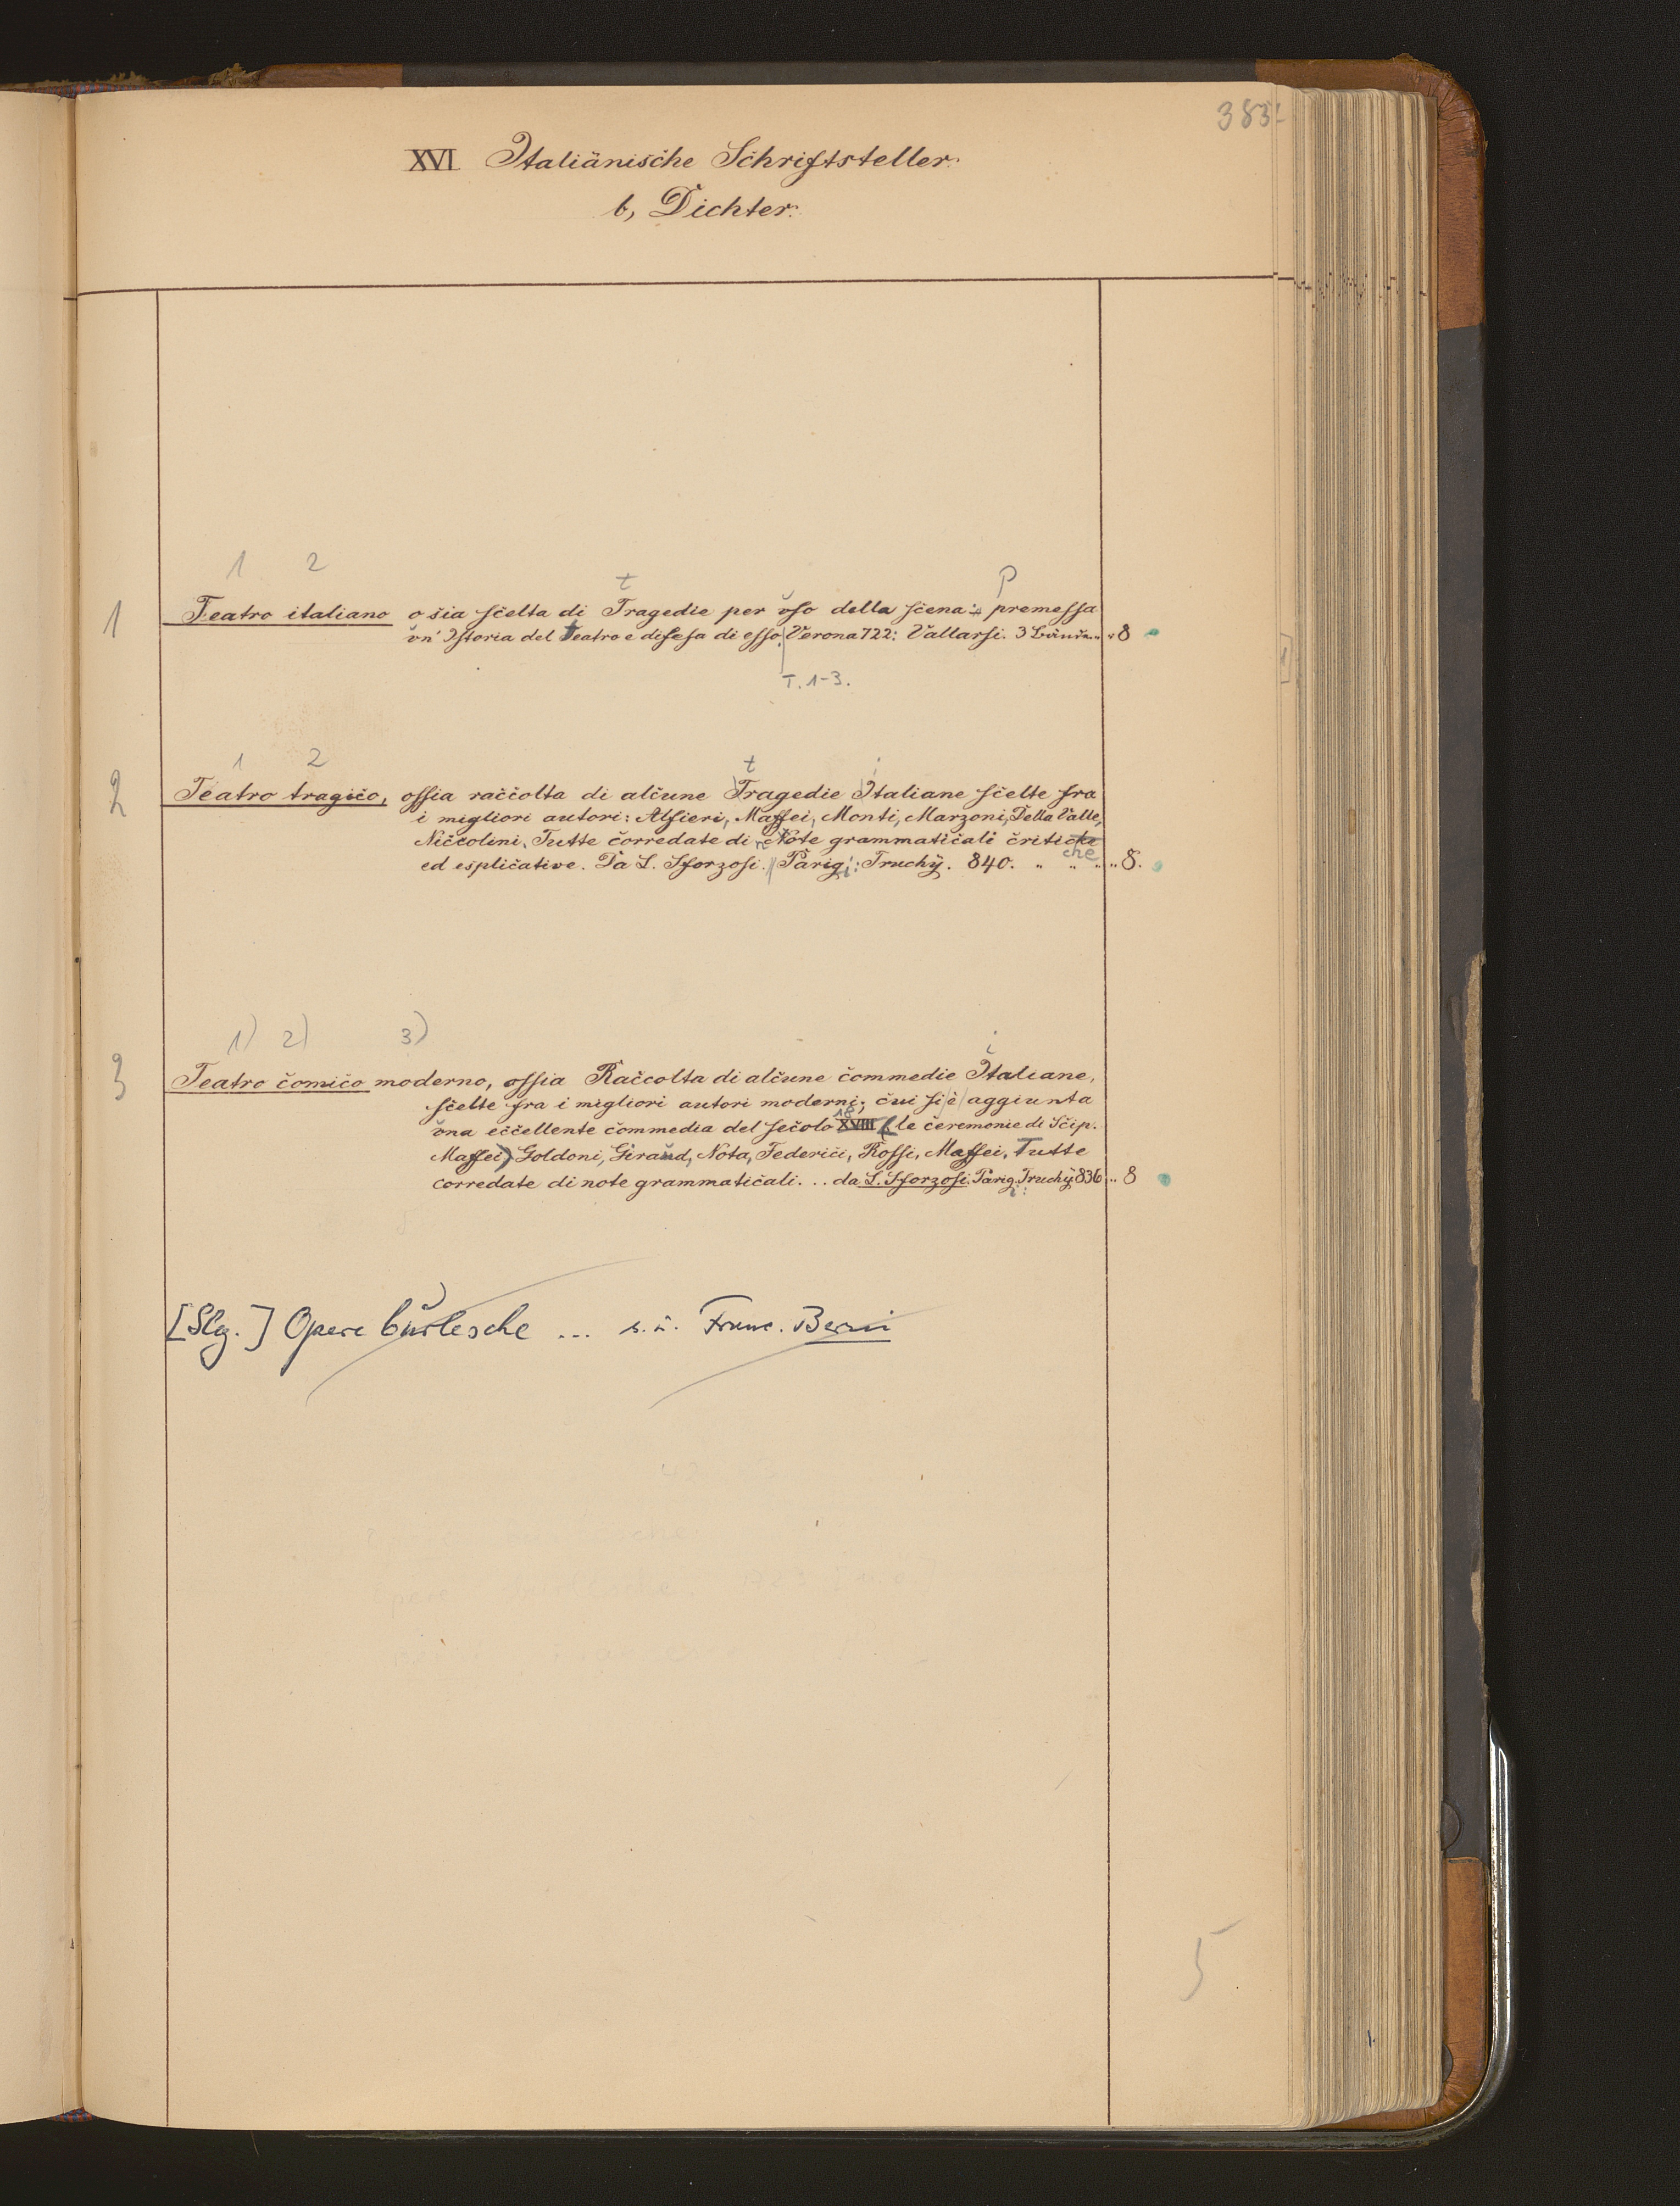 383
XVI Italiänische Schriftsteller.
b, Dichter.
1 2
t p
1 Teatro italiano o sia scelta di Tragedie per uso della scena: premessa
un' Istoria del teatro e difesa di esso. Verona 722: Vallarsi. 3 Bände. " " 8
T. 1-3.
1 2 t i
2 Teatro tragico, ossia raccolta di alcune Tragedie Italiane scelte fra
i migliori autori: Alfieri, Maffei, Monti, Marzoni, Della Valle,
Niccolini, Tutte corredate di note grammaticali critiche
ed esplicative. Da L. Sforzosi. Parigi: Truchÿ. 840. " " " " 8.
1) 2) 3) i
3 Teatro comico moderno, ossia Raccolta di alcune commedie Italiane,
scelte fra i migliori autori moderni; cui si è aggiunta
18
una eccellente commedia del secolo XVIII (le ceremonie di Scip.
Maffei) Goldoni, Giraud, Nota, Federici, Rossi, Maffei, Tutte
corredate di note grammaticali... da L. Sforzosi. Parigi: Truchÿ 836 " 8
[Slg.] Opere burlesche ... s. u. Franc. Berni
5